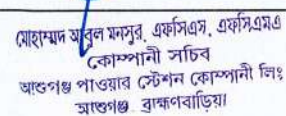 মোহাম্মদ আবুল মনসুর, এফসিএস, এফসিএমএ
কোম্পানী সচিব
আশুগঞ্জ পাওয়ার স্টেশন কোম্পানী লিঃ
আশুগঞ্জ, ব্রাহ্মণবাড়িয়া।